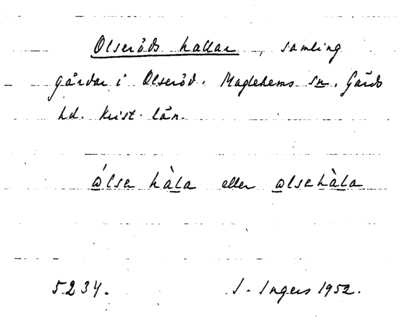 Olseröds hallar, samling
gårdar i Olseröd. Maglehems sn. Gärds
hd. Krist. län.
ólse hàla eller olsehàla
5234. I. Ingers 1952.